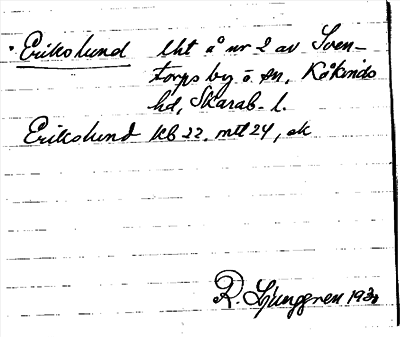 Erikslund lht å nr 2 av Sven-
torps by o. sn, Kåkinds
hd, Skarab. l.
Erikslund kb 22, mtl 24, ek
R. Ljunggren 193